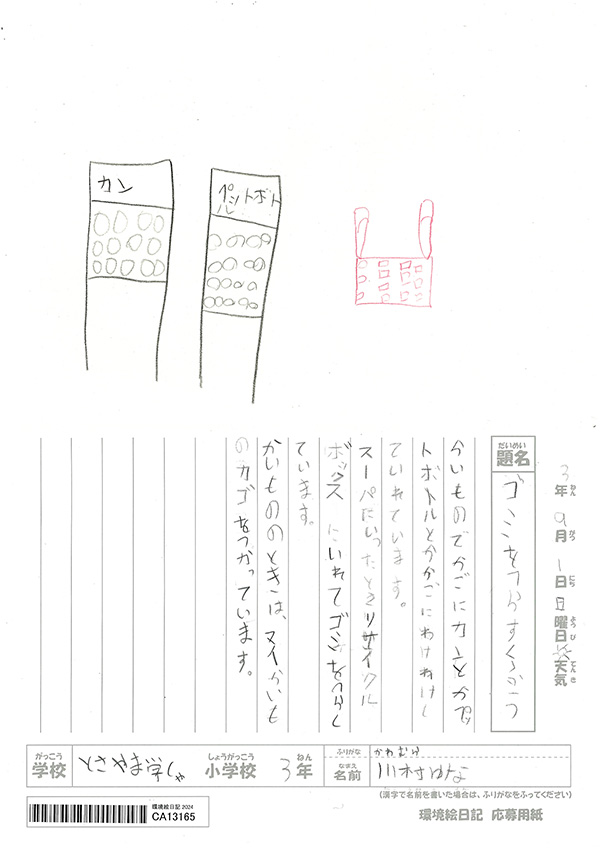 カン
ペットボト
ル
3年ねん9月がつ1日にち日曜日ようび天気てんき
だいめい
題名
ゴミをつからすくらかう
かいものでかごにカンとかペッ
トボトルとかかごにわけわけし
ていれています。
スーパにいったときリサイクル
ボックスにいれてゴミをつからし
ています。
かいもののときは、マイかいも
のカゴをつかっています。
がっこう
学校
とさやま学しゃ
しょうがっこう
小学校
3年
ねん
ふりがな
かわむら
なまえ
名前
川村ゆな
(漢字で名前を書いた場合は、ふりがなをふってください)
環境絵日記 2024
CA13165
環境絵日記 応募用紙